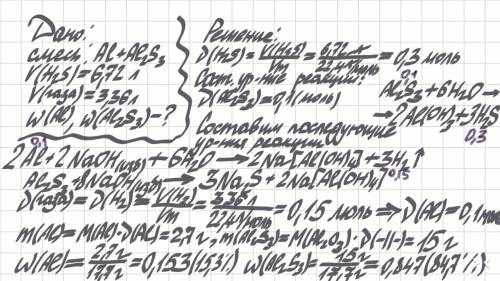 Дано:
смесь: Al+Al₂S₃
V(H₂S)=6,72л
V(газа)=3,36л
w(Al), w(Al₂S₃)-?
Решение:
ν(H₂S)=V(H₂S)/Vm=6,72 л/22,4 л/моль=0,3 моль
Сост. ур-ние реакции:
0,1
Al₂S₃+6H₂O→
ν(Al₂S₃)=0,1(моль)
→2Al(OH)₃+3H₂S
0,3
Составим последующие
ур-ния реакции
0,1
2Al+2NaOH(изб)+6H₂O→2Na[Al(OH)₄]+3H₂↑
0,15
Al₂S₃+8NaOH(изб)→3Na₂S+2Na[Al(OH)₄]
ν(газа)=ν(H₂)=V(H₂)/Vm=3,36л/22,4л/моль=0,15 моль⇒ν(Al)=0,1моль
m(Al)=M(Al)·ν(Al)=2,7 г, m(Al₂S₃)=M(Al₂O₃)·ν(-||-)=15 г
w(Al)=2,7г/17,7г=0,153(15,3%) w(Al₂S₃)=15г/17,7г=0,847(84,7%)